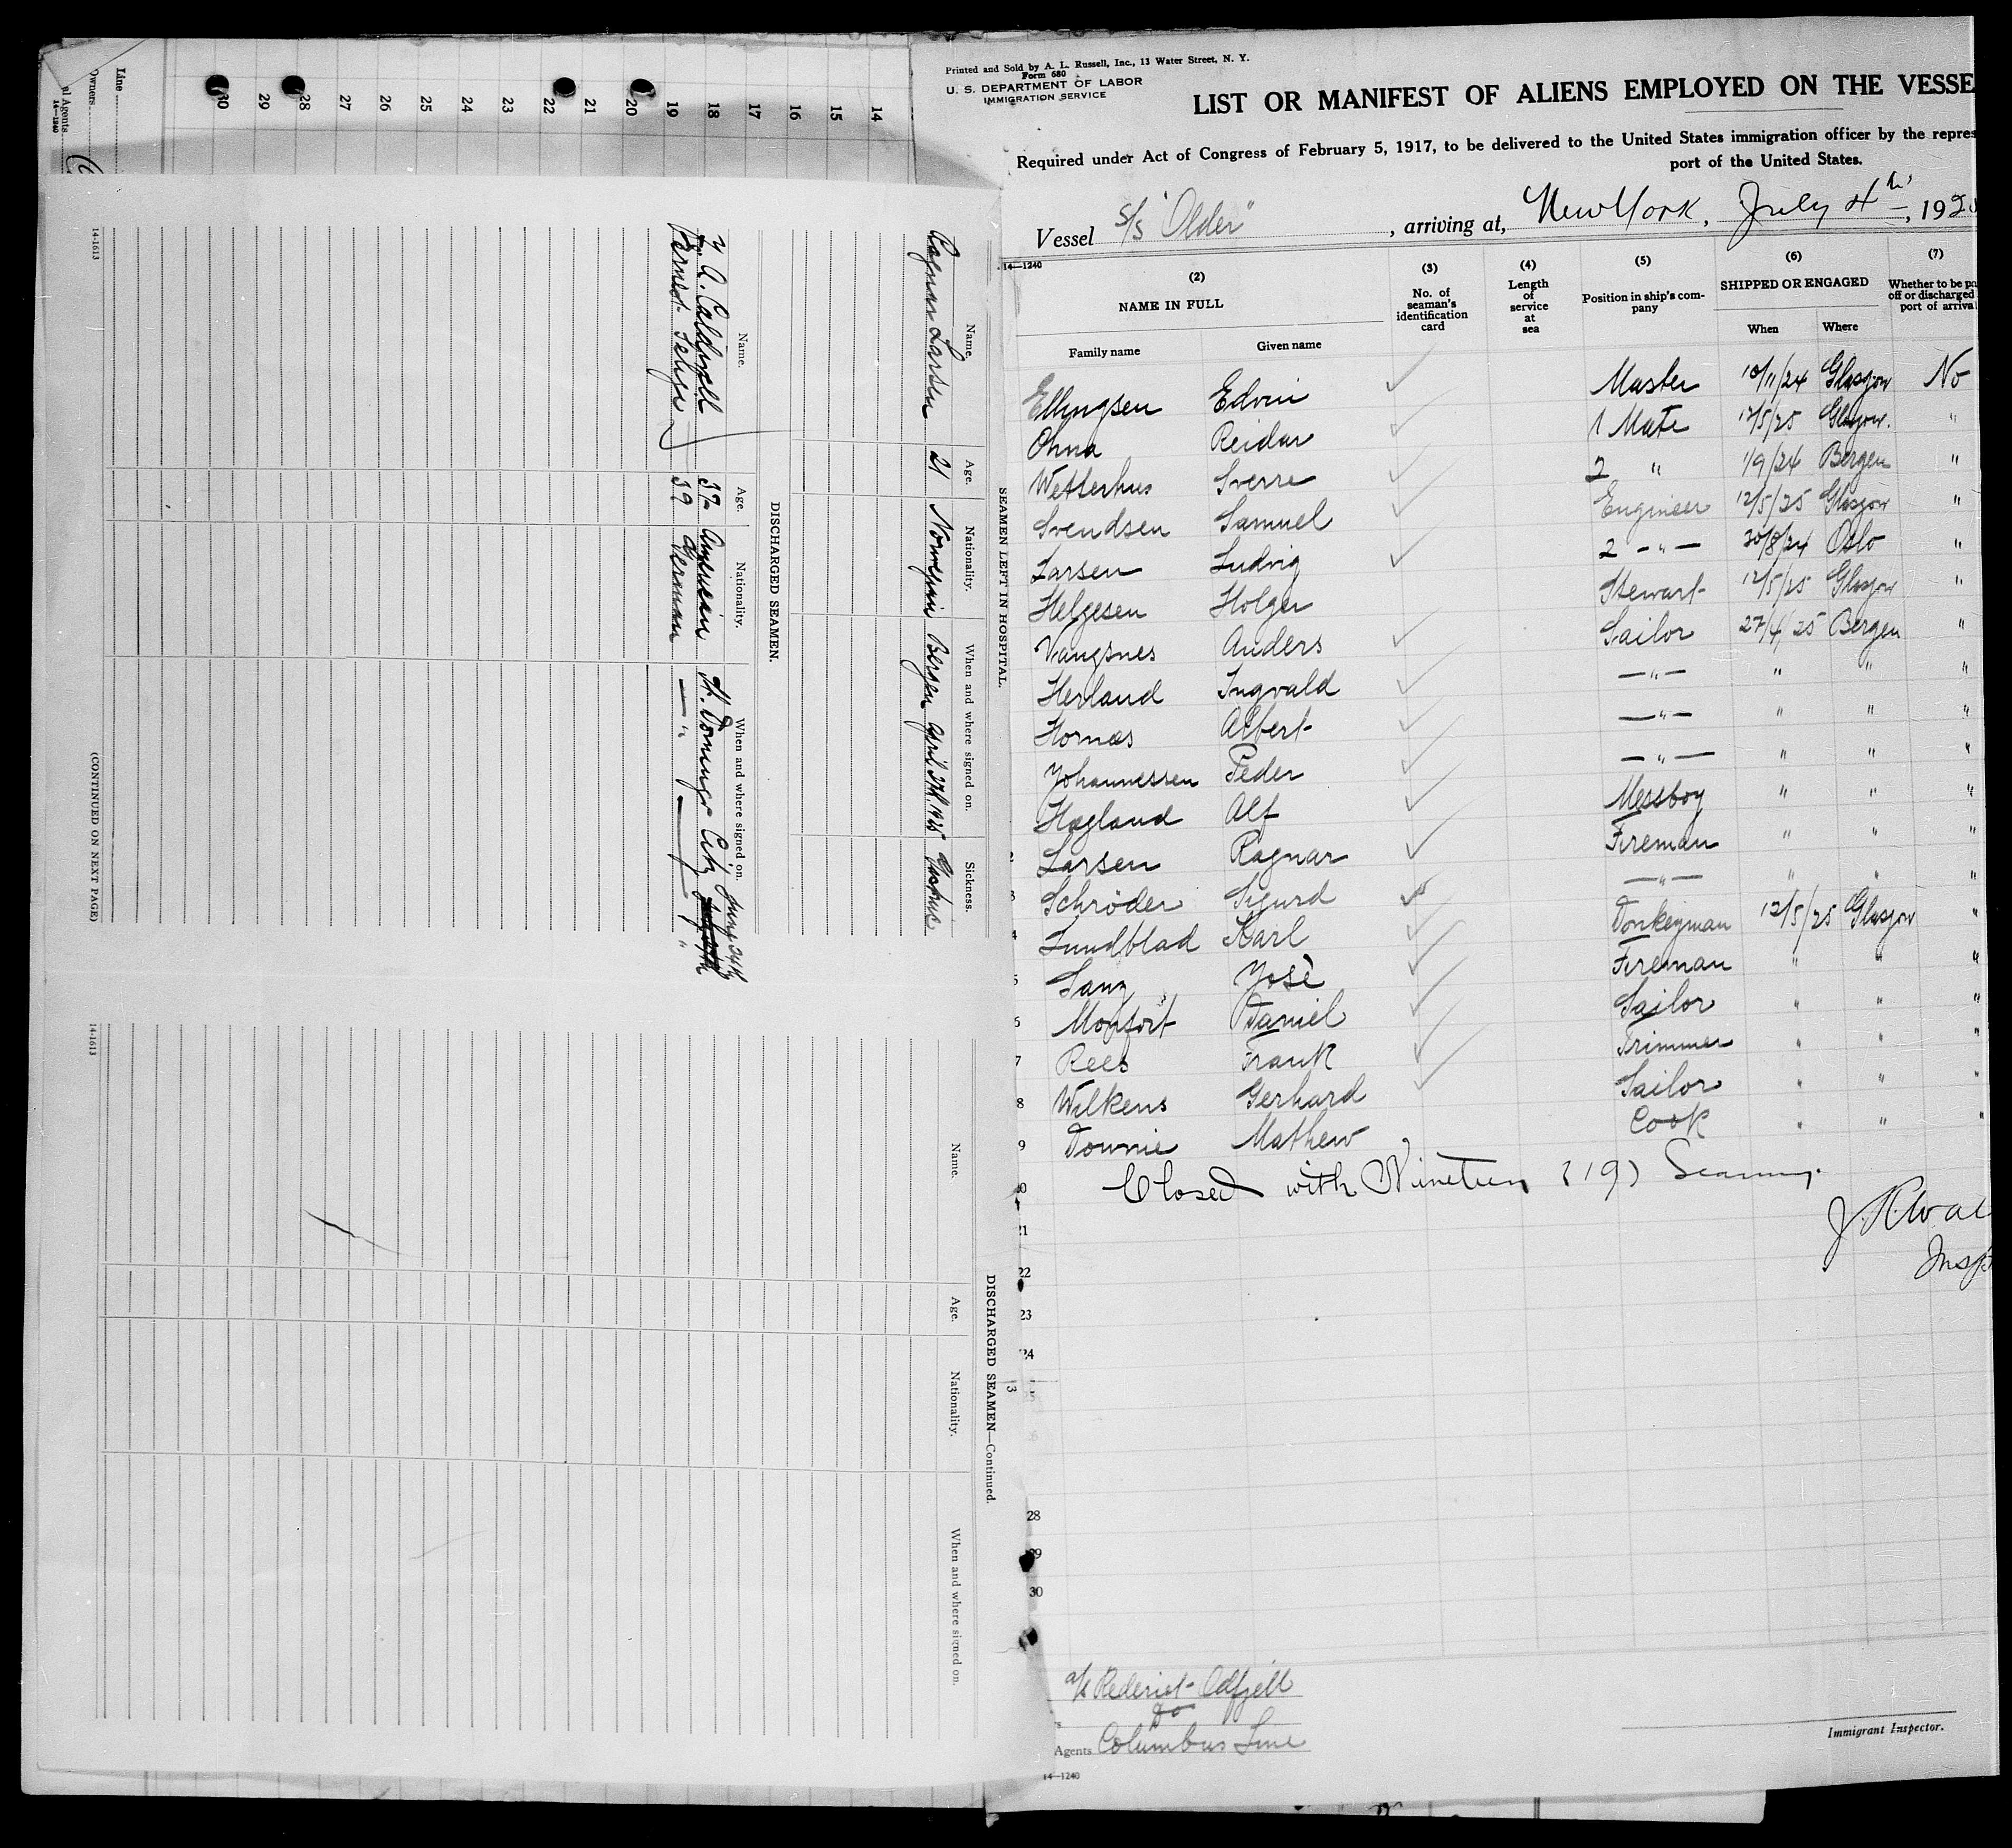 Line
Owners
al Agents
14—1240
30 29 28 27 26 25 24 23 22 21 20 19 18 17 16 15 14
SEAMEN LEFT IN HOSPITAL.
Name. Age. Nationality. When and where signed on. Sickness.
Ragnar Larsen 21 Norwegian Bergen April 27th 1925
DISCHARGED SEAMEN.
Name. Age. Nationality. When and where signed on.
A. Caldwell 39 American St. Domingo City June 24th
39 German — " — "
14-1613
(CONTINUED ON NEXT PAGE)
DISCHARGED SEAMEN—Continued.
Name. Age. Nationality. When and where signed on.
14-1613
Printed and Sold by A. L. Russell, Inc., 13 Water Street, N. Y.
Form 680
U. S. DEPARTMENT OF LABOR
IMMIGRATION SERVICE
LIST OR MANIFEST OF ALIENS EMPLOYED ON THE VESSE
Required under Act of Congress of February 5, 1917, to be delivered to the United States immigration officer by the repres
port of the United States.
Vessel S/S "Older", arriving at, New York, July 4th, 192
14—1240
(2) (3) (4) (5) (6) (7)
NAME IN FULL
No. of seaman's identification card
Length of service at sea
Position in ship's company
SHIPPED OR ENGAGED
Whether to be pa
off or discharged
port of arrival
Family name Given name When Where
Ellingsen Edvin Master 10/11/24 Glasgow No
Ohna Reidar 1 Mate 12/5/25 Glasgow. "
Wetterhus Sverre 2 " 1/9/24 Bergen "
Svendsen Samuel Engineer 12/5/25 Glasgow "
Larsen Ludvig 2 — " — 30/8/24 Oslo "
Helgesen Holger Stewart 12/5/25 Glasgow "
Vangsnes Anders Sailor 27/4/25 Bergen "
Herland Ingvald — " — " " "
Hornæs Albert — " — " " "
Johannessen Peder — " — " " "
Hagland Alf Messboy " " "
Larsen Ragnar Fireman " " "
Schrøder Sigurd — " — " " "
4 Lundblad Karl Donkeyman 12/5/25 Glasgow "
5 Sanz José Fireman " " "
6 Monfort Daniel Sailor " " "
7 Rees Frank Trimmer " " "
8 Wilkens Gerhard Sailor " " "
9 Downie Mathew Cook " " "
Closed with Nineteen (19) Seamen.
21
Insp
22
23
24
28
29
30
A/S Rederiet Odfjell
Do
Agents Columbus Line
Immigrant Inspector.
14—1240